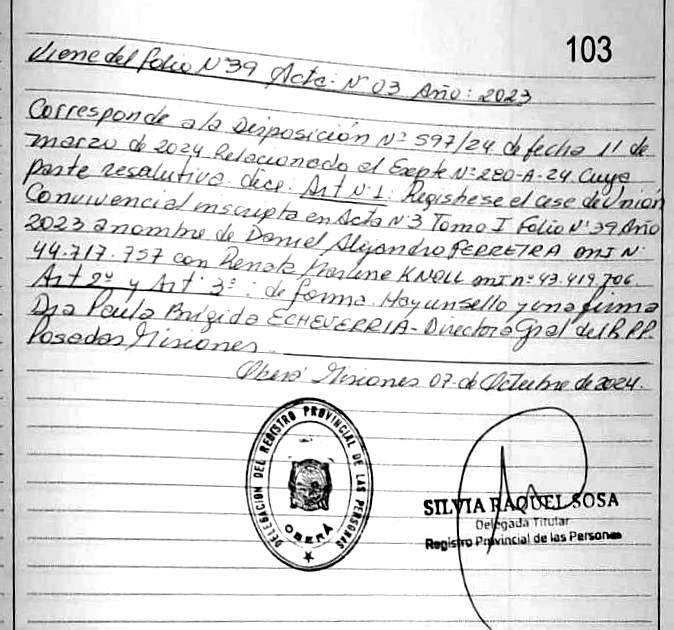 103
Viene del folio N°39 Acta: N° 03 Año: 2023
Corresponde a la Disposición N° 597/24 de fecha 11 de
marzo de 2024 Relacionado al Expte N° 280-A-24 Cuya
parte resolutiva dice: Art N° 1: Registrese el cese de Unión
Convivencial inscripta en Acta N°3 Tomo I Folio N° 39 Año
2023 a nombre de Daniel Alejandro PERREIRA DNI N°
44.717.757 con Renata Marlene KNOLL DNI n° 43.419.706.
Art 2° y Art. 3°: de forma. Hay un sello y una firma
Dra Paula Brigida ECHEVERRIA - Directora Gral del R.PP.
Posadas Misiones
Oberá Misiones 07 de Octubre de 2024.
DELEGACION DEL REGISTRO PROVINCIAL DE LAS PERSONAS
OBERÁ
SILVIA RAQUEL SOSA
Delegada Titular
Registro Provincial de las Personas